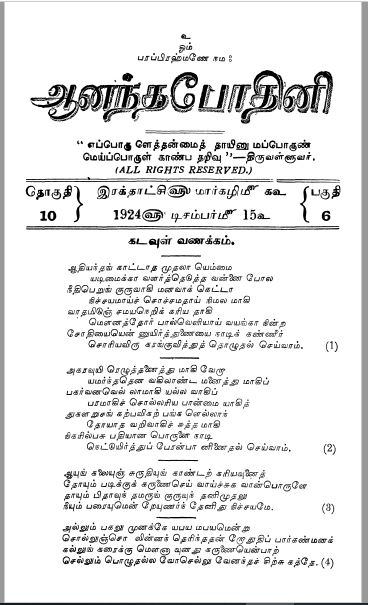 உ
ஓம்
பரப்பிரஹ்மணே நம:
ஆனந்தபோதினி
“ எப்பொரு ளெத்தன்மைத் தாயினு மப்பொருண்
மெய்ப்பொருள் காண்ப தறிவு ”—திருவள்ளுவர்.
(ALL RIGHTS RESERVED.)
தொகுதி 10
இரக்தாட்சி௵ மார்கழி௴ ௧௨
1924௵ டிசம்பர்௴ 15௨
பகுதி 6
கடவுள் வணக்கம்.
ஆதியந்தங் காட்டாத முதலா யெம்மை
யடிமைக்கா வளர்த்தெடுத்த வன்னை போல
நீதிபெறுங் குருவாகி மனவாக் கெட்டா
நிச்சயமாய்ச் சொச்சமதாய் நிமல மாகி
வாதமிடுஞ் சமயநெறிக் கரிய தாகி
மௌனத்தோர் பால்வெளியாய் வயங்கா நின்ற
சோதியையென் னுயிர்த்துணையை நாடிக் கண்ணீர்
சொரியவிரு கரங்குவித்துத் தொழுதல் செய்வாம். (1)
அகரவுயி ரெழுத்தனைத்து மாகி வேறு
யமர்ந்ததென வகிலாண்ட மனைத்து மாகிப்
பகர்வனவெல் லாமாகி யல்ல வாகிப்
பரமாகிச் சொல்லரிய பான்மை யாகித்
துகளறுசங் கற்பவிகற் பங்க ளெல்லாந்
தோயாத வறிவாகிச் சுத்த மாகி
நிகரில்பசு பதியான பொருளை நாடி
நெட்டுயிர்த்துப் பேரன்பா னினைதல் செய்வாம். (2)
ஆயுங் கலையுஞ் சுருதியுங் காண்டற் கரியவுனைத்
தோயும் படிக்குக் கருணைசெய் வாய்சுக வான்பொருளே
தாயும் பிதாவுந் தமருங் குருவுந் தனிமுதலு
நீயும் பரையுமென் றேயுணர்ந் தேனிது நிச்சயமே. (3)
அல்லும் பகலு முனக்கே யபய மபயமென்று
சொல்லுஞ்சொ லின்னந் தெரிந்ததன் றோதுதிப் பார்கண்மனக்
கல்லுங் கரைக்கு மௌன வுனது கருணையென்பாற்
செல்லும் பொழுதல்ல வோசெல்லு வேனந்தச் சிற்சு கத்தே. (4)